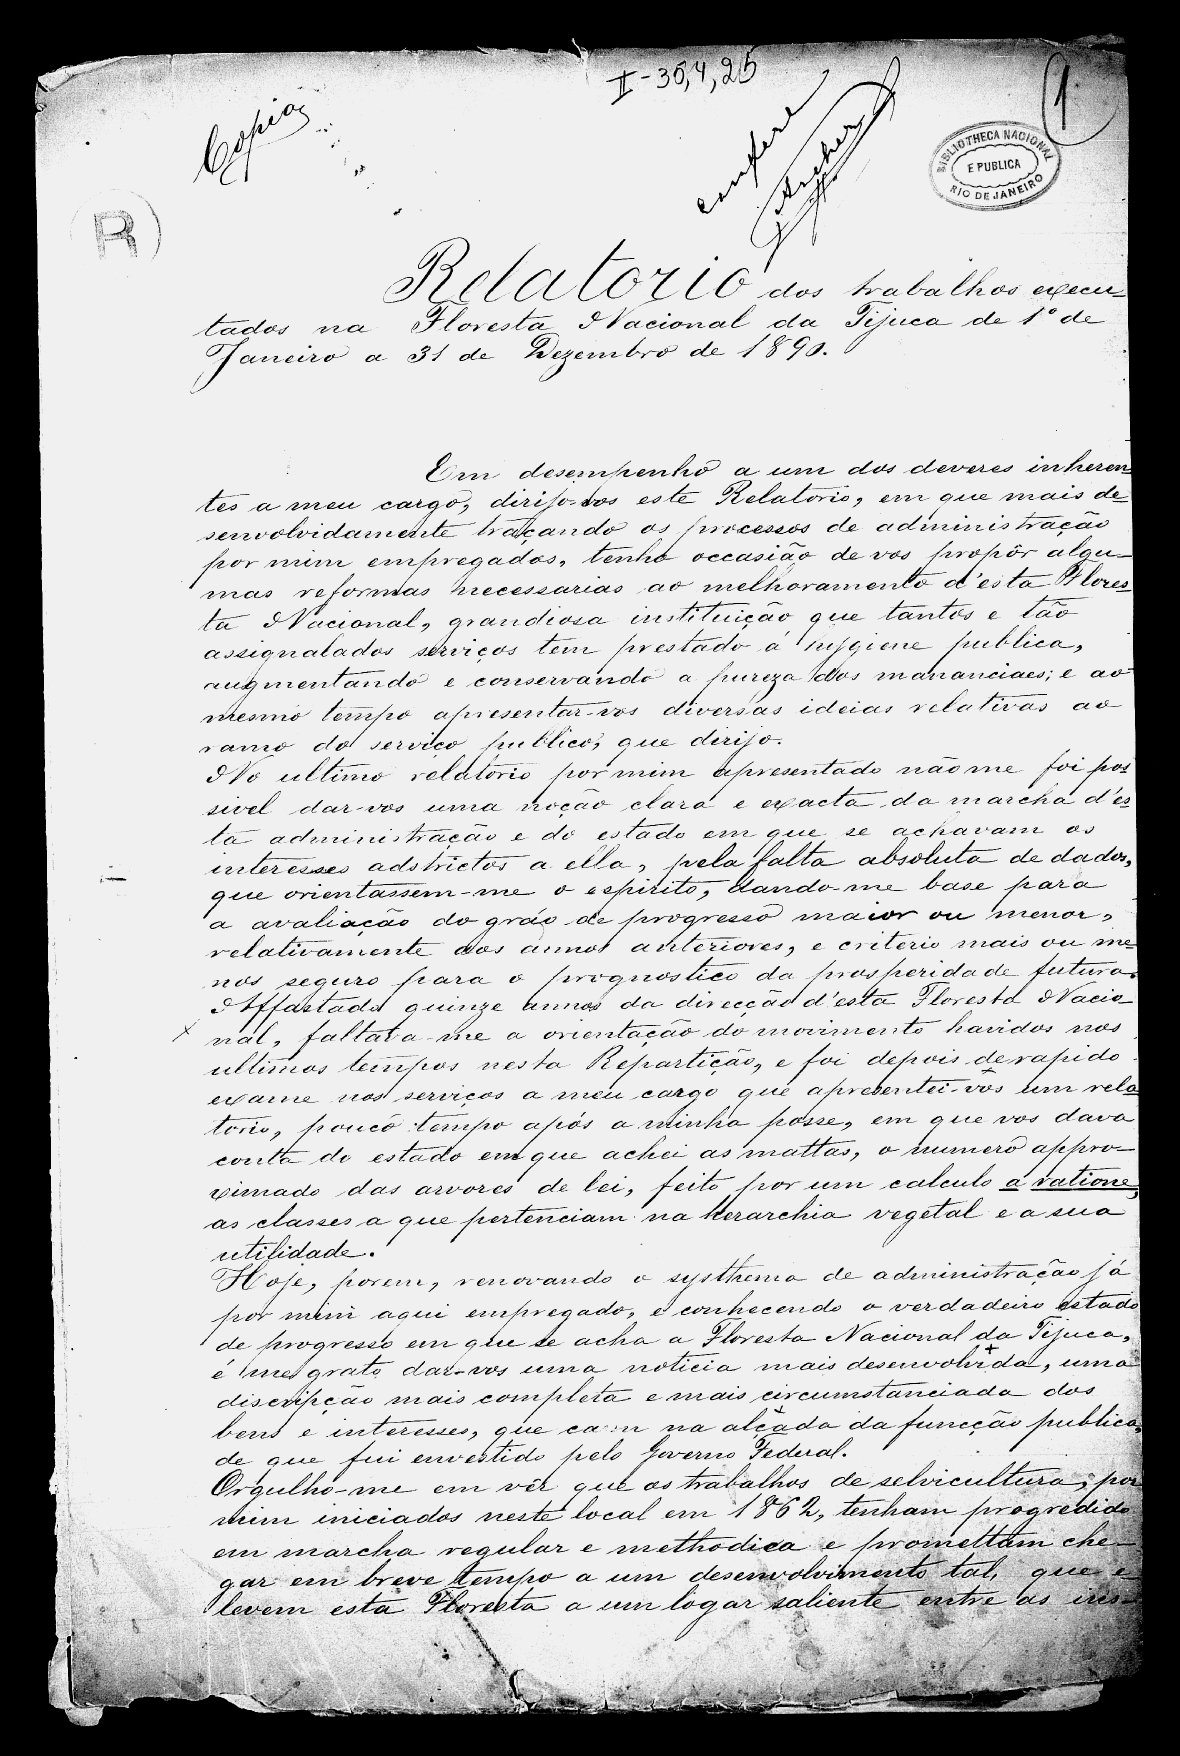 II-35,4,25
1
Copia
confere
Archer
BIBLIOTHECA NACIONAL
E PUBLICA
RIO DE JANEIRO
R
Relatorio dos trabalhos execu-
tados na Floresta Nacional da Tijuca de 1º de
Janeiro a 31 de Dezembro de 1890.
Em desempenho a um dos deveres inheren-
tes a meu cargo, dirijo-vos este Relatorio, em que mais de-
senvolvidamente traçando os processos de administração
por mim empregados, tenho occasião de vos propôr algu-
mas reformas necessarias ao melhoramento d'esta Flores-
ta Nacional, grandiosa instituição que tantos e tão
assignalados serviços tem prestado á hygiene publica,
augmentando e conservando a pureza dos mananciaes; e ao
mesmo tempo apresentar-vos diversas ideias relativas ao
ramo do serviço publico, que dirijo.
No ultimo relatorio por mim apresentado não me foi pos-
sivel dar-vos uma noção clara e exacta da marcha d'es-
ta administração e do estado em que se achavam os
interesses adstrictos a ella, pela falta absoluta de dados,
que orientassem-me o espirito, dando-me base para
a avaliação do gráo de progresso maior ou menor,
relativamente aos annos anteriores, e criterio mais ou me-
nos seguro para o prognostico da prosperidade futura.
Affastado quinze annos da direcção d'esta Floresta Nacio-
x nal, faltava-me a orientação do movimento havidos nos
ultimos tempos nesta Repartição, e foi depois de rapido
exame nos serviços a meu cargo que apresentei-vos um rela-
torio, pouco tempo após a minha posse, em que vos dava
conta do estado em que achei as mattas, o numero appro-
ximado das arvores de lei, feito por um calculo a ratione,
as classes a que pertenciam na herarchia vegetal e a sua
utilidade.
Hoje, porem, renovando o systhema de administração já
por mim aqui empregado, e conhecendo o verdadeiro estado
de progresso em que se acha a Floresta Nacional da Tijuca,
é me grato dar-vos uma noticia mais desenvolvida, uma
discripção mais completa e mais circumstanciada dos
bens e interesses, que caem na alçada da funcção publica,
de que fui envestido pelo Governo Federal.
Orgulho-me em vêr que os trabalhos de selvicultura, por
mim iniciados neste local em 1862, tenham progredido
em marcha regular e methodica e promettam che-
gar em breve tempo a um desenvolvimento tal, que e-
levem esta Floresta a um logar saliente entre as ins-